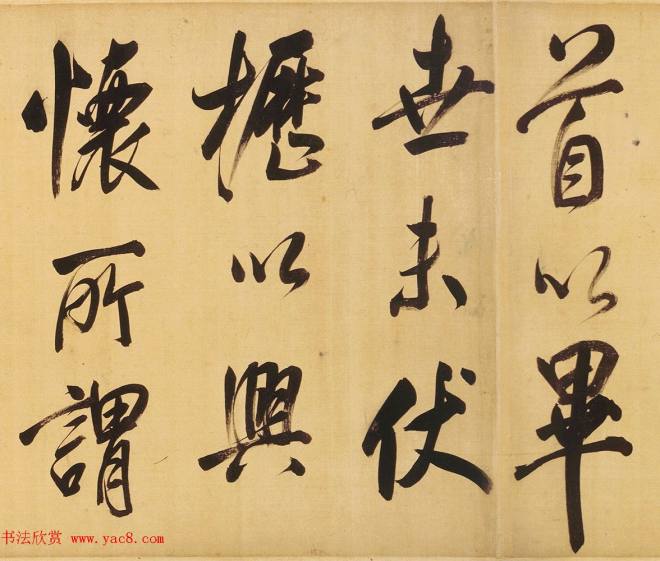 首以畢
世未伏
櫪以興
懷所謂
书法欣赏 www.yac8.com